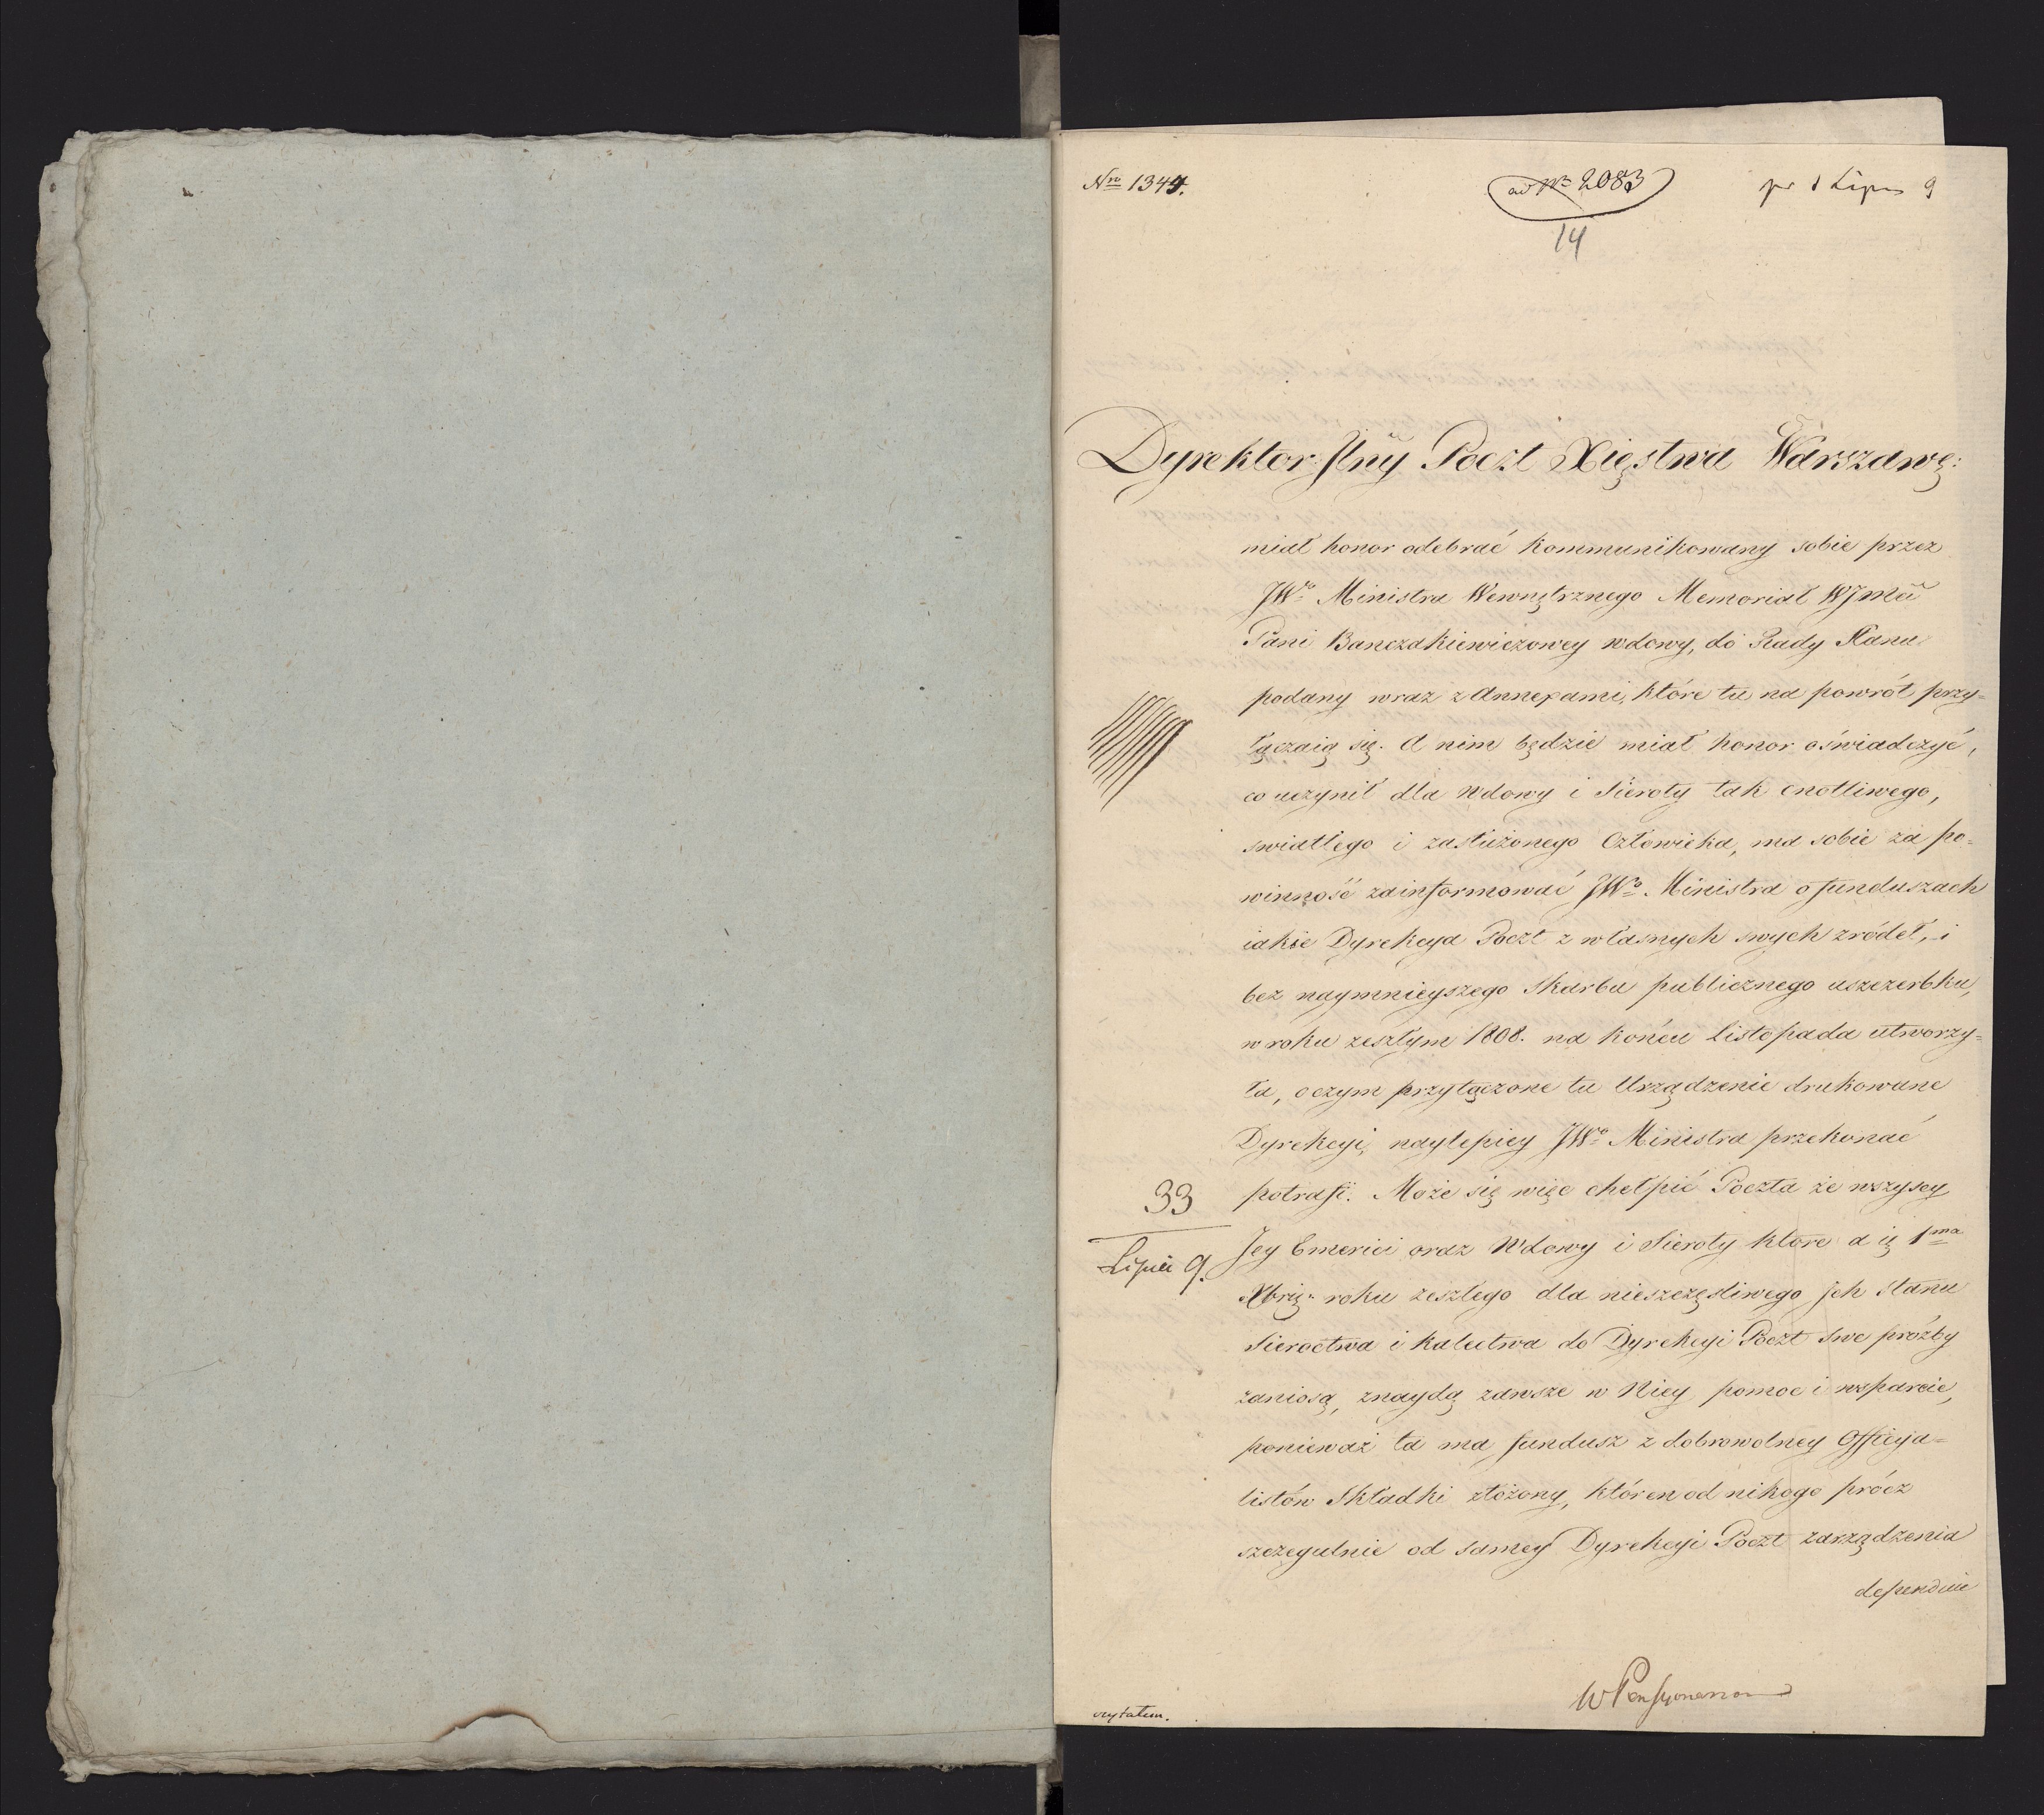 Nro 1344.
ad Nro 2083
14
pr 1 Lipca 9
Dyrektor Jlny Poczt Xięstwa Warszawę:
miał honor odebrać kommunikowany sobie przez
JWo Ministra Wewnętrznego Memoriał WJmci
Pani Banczakiewiczowey wdowy, do Rady Stanu
podany wraz z Annexami, które tu na powrót przy=
łączaią się. A nim będzie miał honor oświadczyć,
co uczynił dla Wdowy i Sieroty tak cnotliwego,
swiatłego i zasłużonego Człowieka, ma sobie za po=
winność zainformować JWo. Ministra o funduszach
iakie Dyrekcya Poczt z własnych swych zródeł, i
bez naymnieyszego Skarbu publicznego uszczerbku,
w roku zeszłym 1808. na końcu Listopada utworzy=
ła, o czym przyłączone tu Urządzenie drukowane
Dyrekcyi, naylepiey JWo Ministra przekonać
potrafi. Może się więc chełpić Poczta że wszyscy
33
Lipca 9.
Jey Emerici oraz Wdowy i Sieroty które a 1ma
Xbris roku zeszłego dla nieszczęsliwego Jch stanu
Sieroctwa i Kalectwa do Dyrekcyi Poczt swe prózby
zaniosą, znaydą zawsze w Niey pomoc i wsparcie,
ponieważ ta ma fundusz z dobrowolney Officya=
listów Składki złożony, któren od nikogo prócz
szczegulnie od samey Dyrekcyi Poczt zarządzenia
dependuie
W Pensyonarzow